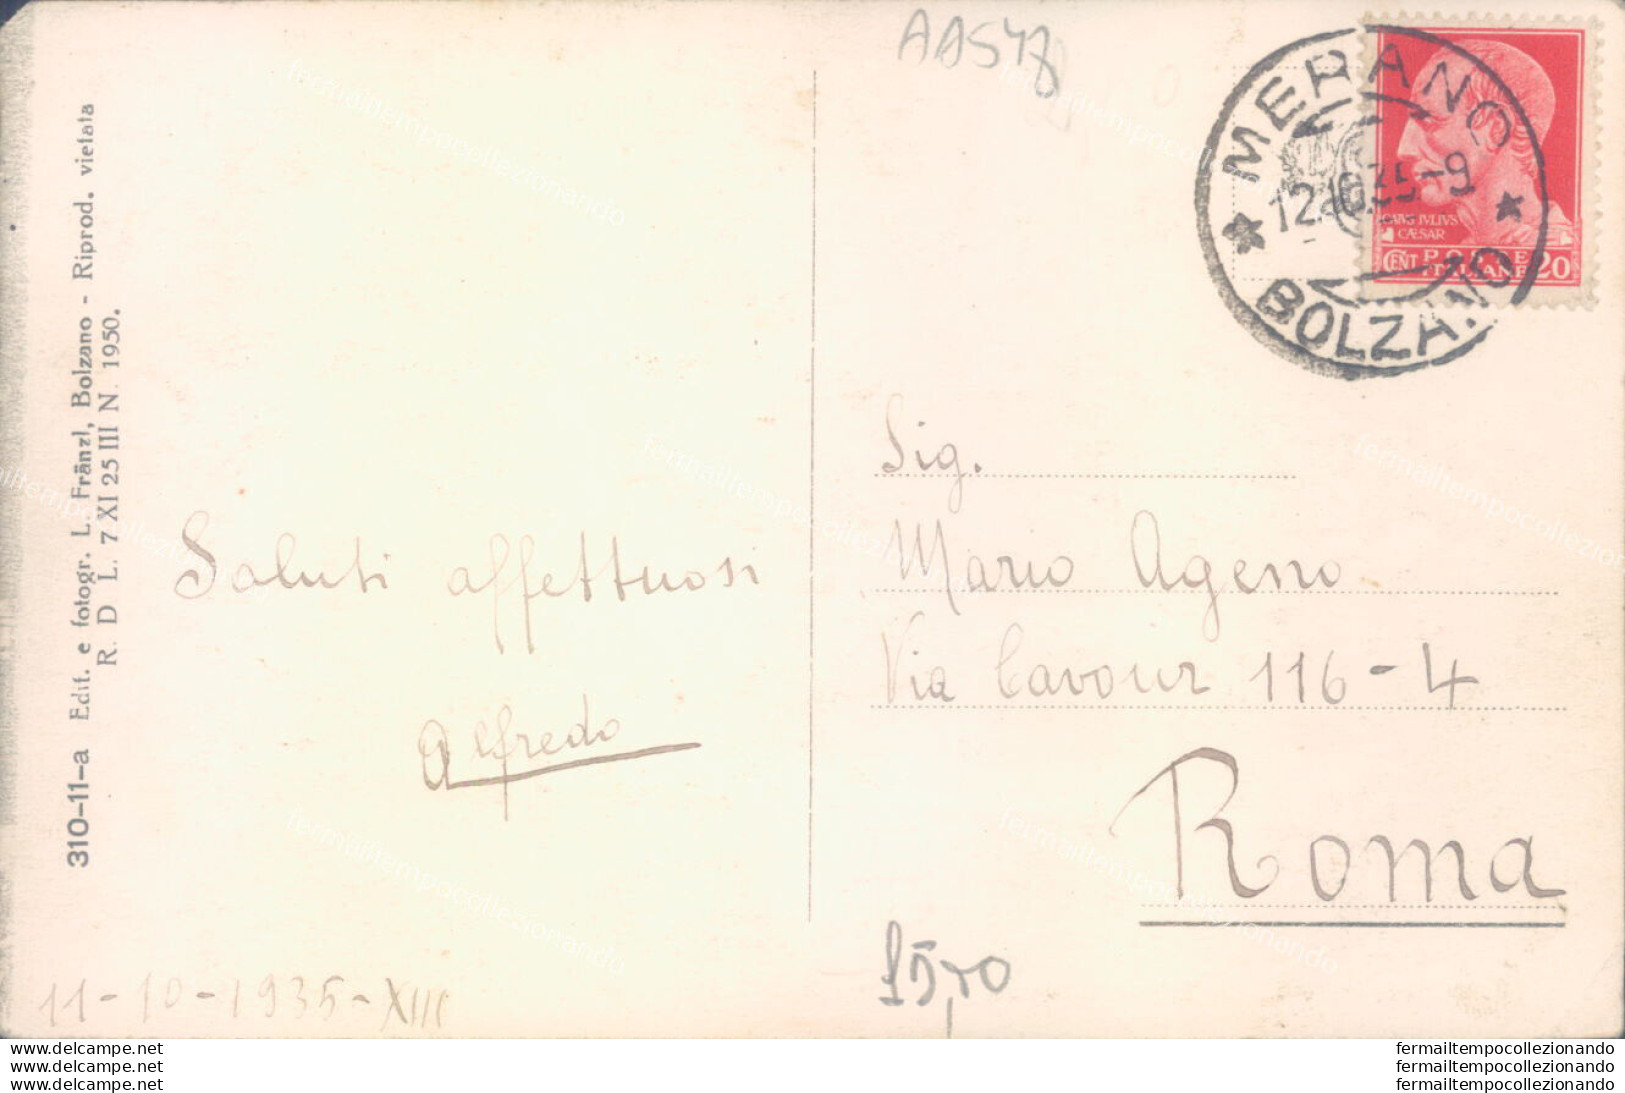 AA548
MERANO
12.10.35-9
BOLZANO
CAIVS IVLIVS
CÆSAR
CENT POSTE 20
ITALIANE
310-11-a Edit. e fotogr. L. Fränzl, Bolzano - Riprod. vietata
R. D L. 7 XI 25 III N. 1950.
Saluti affettuosi
Alfredo
11-10-1935-XIII
Sig.
Mario Ageno
Via Cavour 116-4
Roma
fermailtempocollezionando
www.delcampe.net
www.delcampe.net
www.delcampe.net
fermailtempocollezionando
fermailtempocollezionando
fermailtempocollezionando